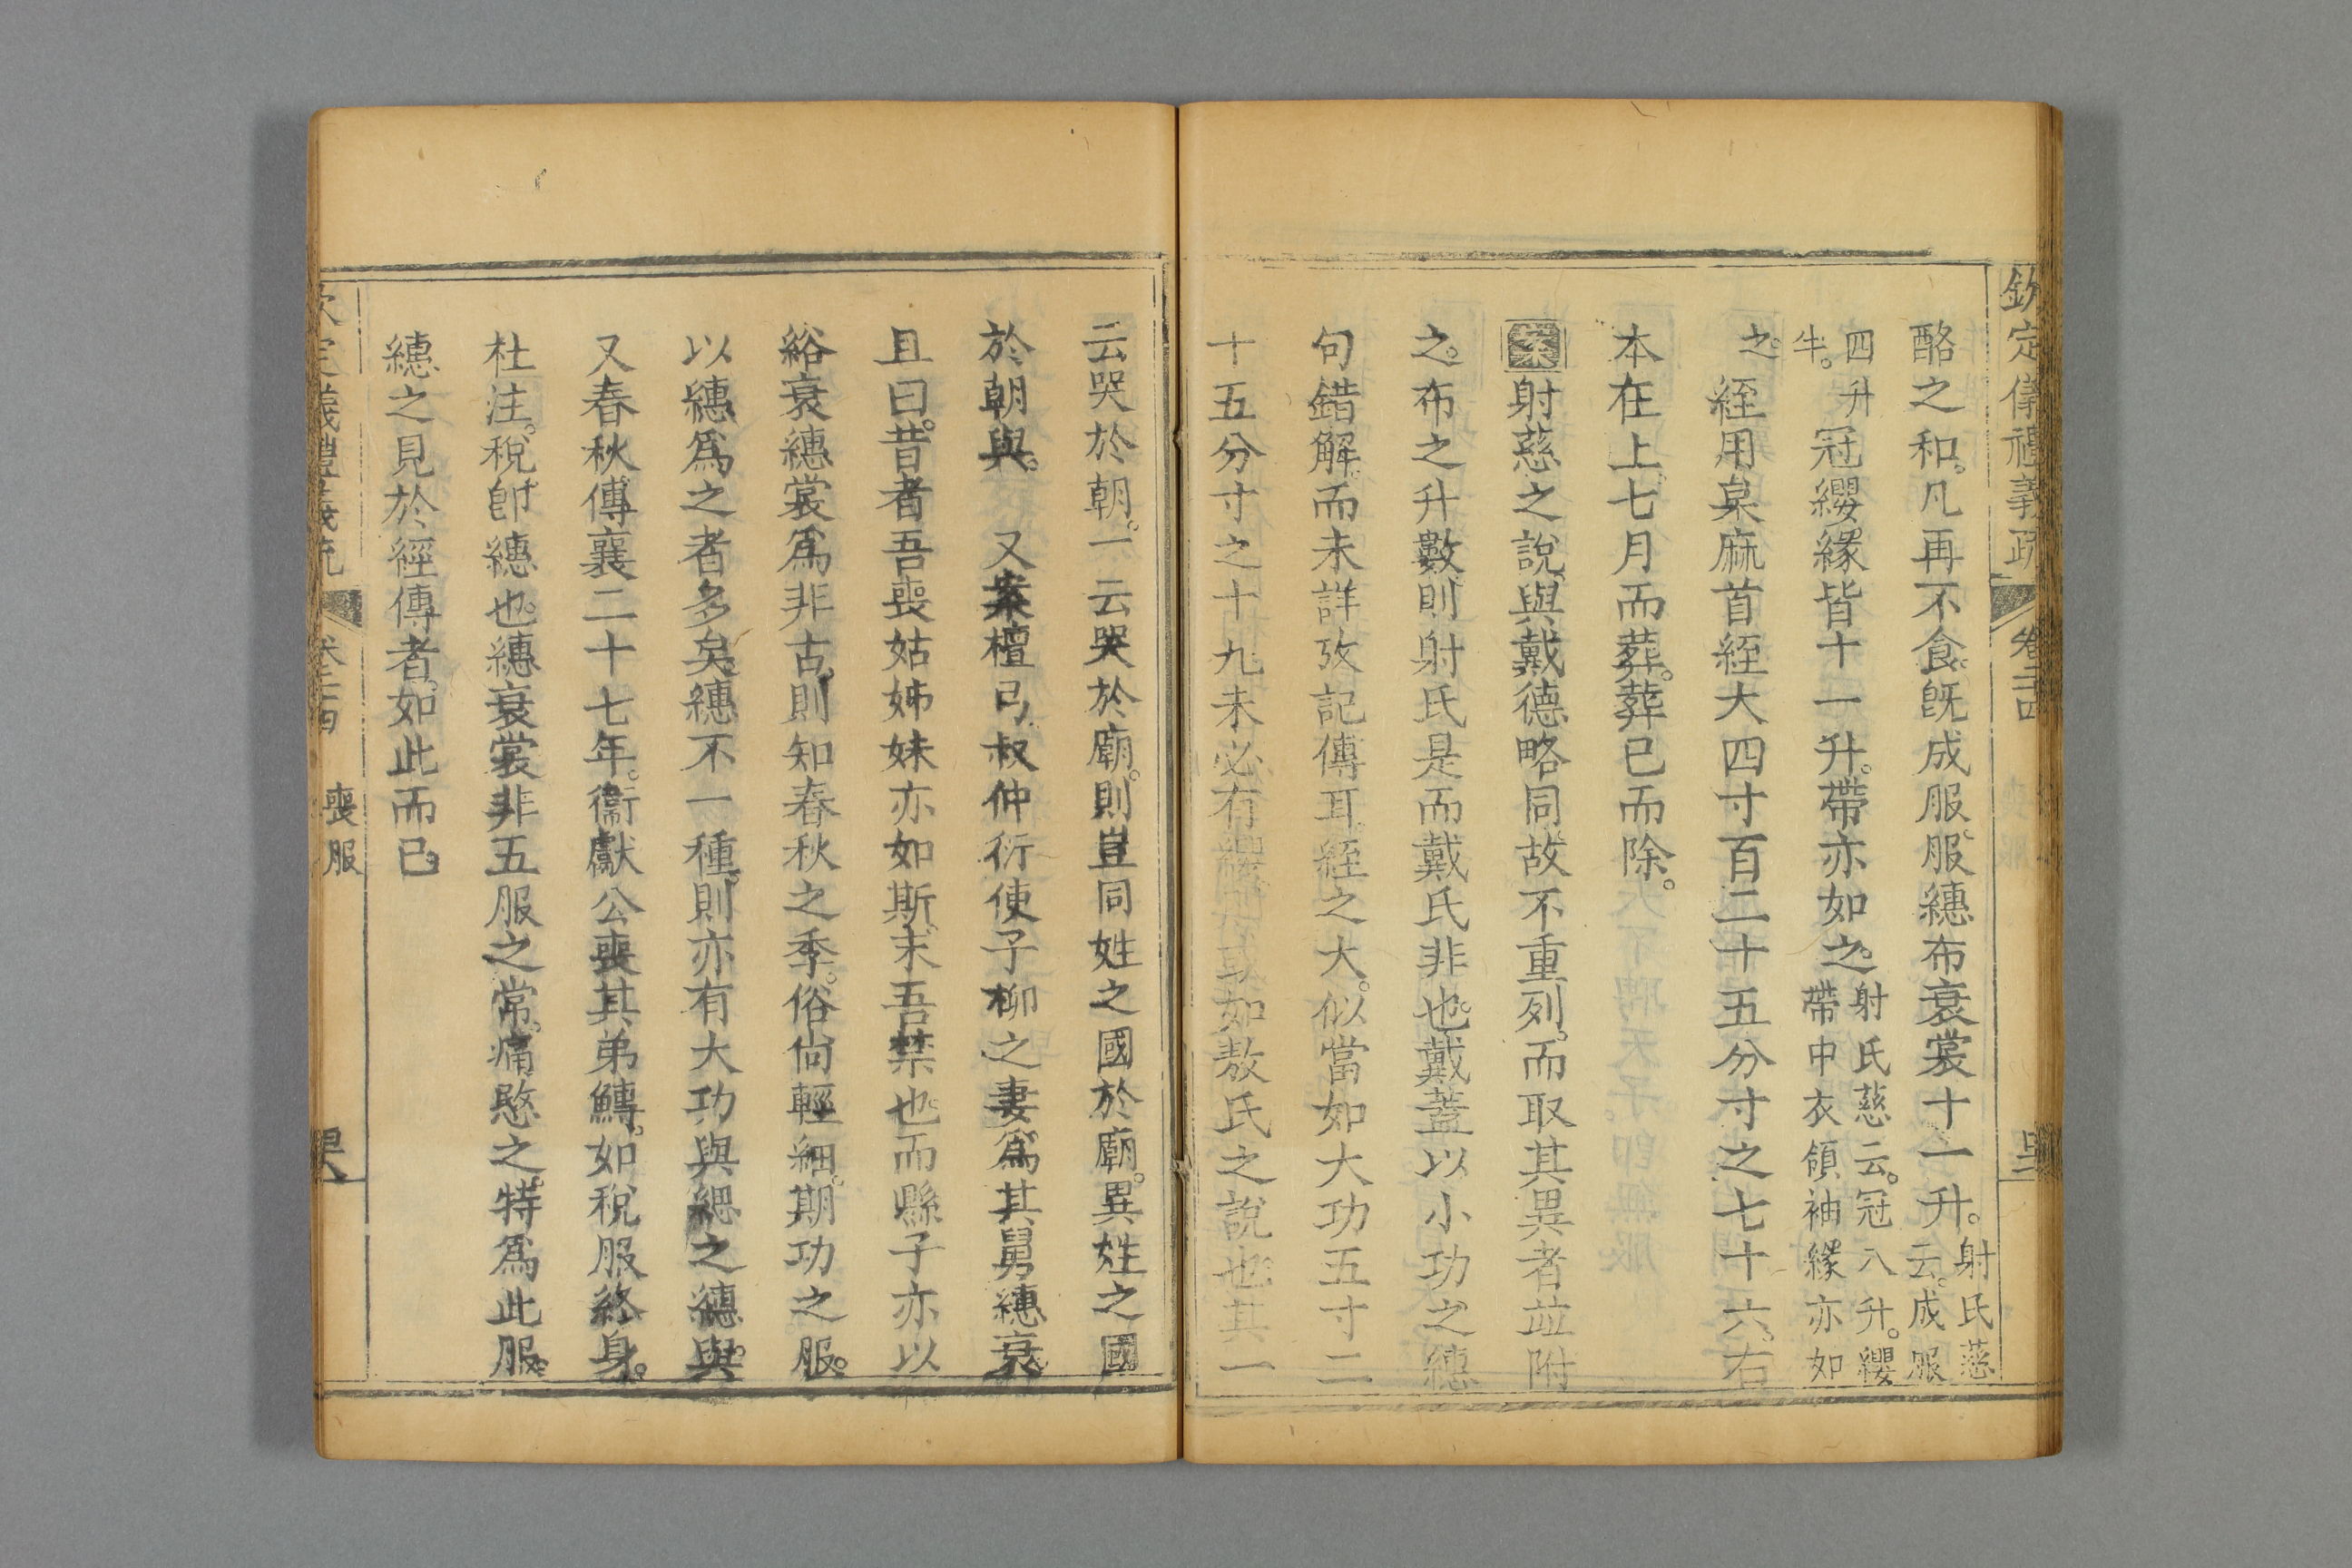 欽定儀禮義疏 卷二十四
酪之和。凡再不食。旣成服。服繐布衰裳十一升。射氏慈
云。成服
四升
半。冠纓緣皆十一升。帶亦如之。射氏慈云。冠八升。纓
帶中衣領袖緣亦如
之。絰用枲麻首絰大四寸百二十五分寸之七十六。右
本在上。七月而葬。葬已而除。
案射慈之說。與戴德略同。故不重列。而取其異者竝附
之。布之升數則射氏是而戴氏非也。戴蓋以小功之繐
句錯解。而未詳攷記傳耳。絰之大。似當如大功五寸二
十五分寸之十九未必有纓或如敖氏之說也其一
云哭於朝。一云哭於廟。則豈同姓之國於廟。異姓之國
於朝與。 又案檀弓叔仲衍使子柳之妻爲其舅繐衰
且曰。昔者吾喪姑姊妹亦如斯。末吾禁也。而縣子亦以
綌衰繐裳爲非古。則知春秋之季。俗尚輕細。期功之服。
以繐爲之者多矣。繐不一種。則亦有大功與緦之繐與。
又春秋傳襄二十七年。衞獻公喪其弟鱄。如稅服終身。
杜注。稅卽繐也。繐衰裳非五服之常。痛愍之。特爲此服。
繐之見於經傳者。如此而已
喪服